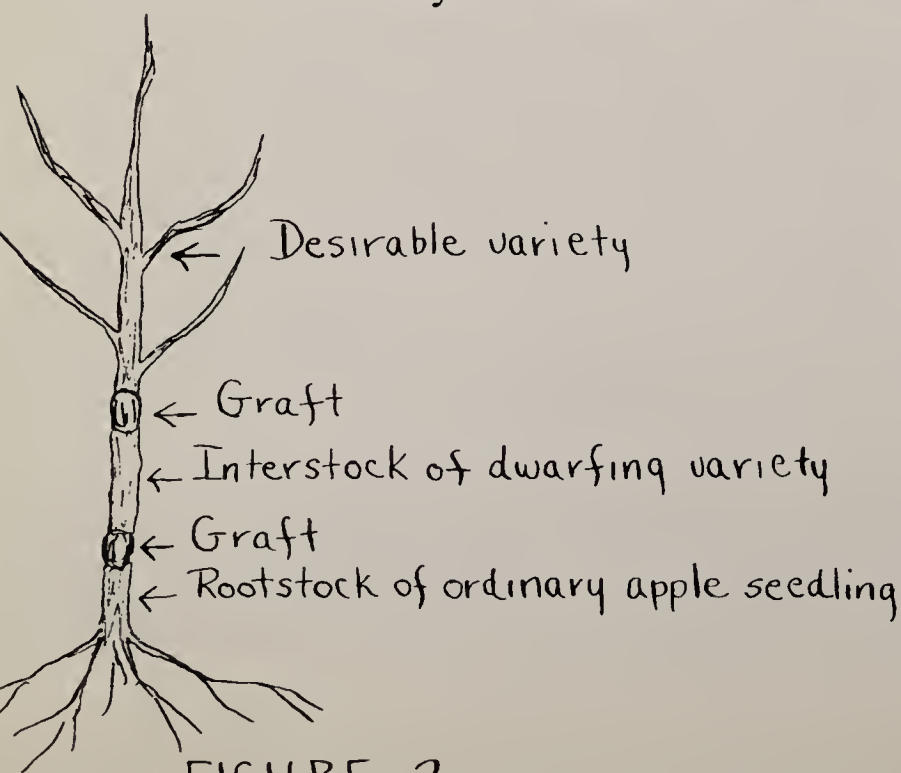 Desirable variety
Graft
Interstock of dwarfing variety
Graft
Rootstock of ordinary apple seedling
FIGURE